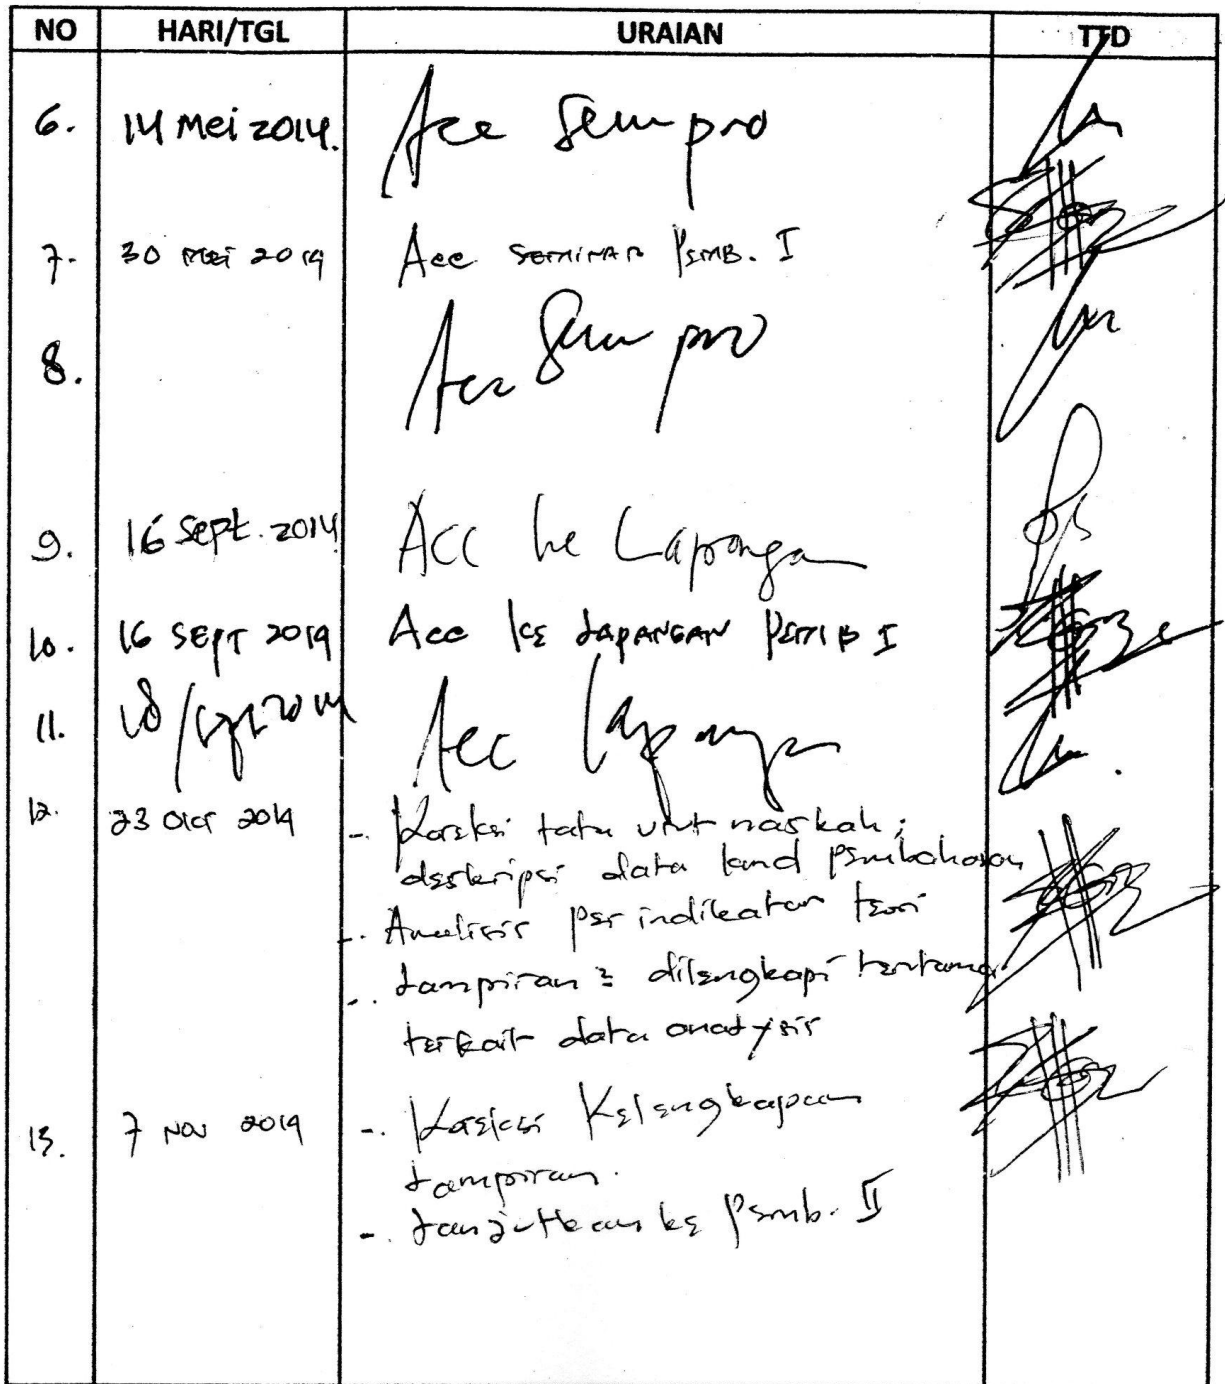 NO HARI/TGL URAIAN TTD
6. 14 Mei 2014. Acc Sempro
7. 30 MEI 2014 Acc SEMINAR PEMB. I
8. Acc Sempro
9. 16 Sept. 2014 Acc ke Lapangan
10. 16 SEPT 2014 Acc KE LAPANGAN PEMB I
11. 18/Sept 2014 Acc Lapangan
12. 23 OKT 2014 -. Koreksi tata urut naskah;
deskripsi data and pembahasan
-. Analisis per indikator teori
-. Lampiran² dilengkapi terutama
terkait data analysis
13. 7 NOV 2014 -. Koreksi Kelengkapan
Lampiran.
-. Lanjutkan ke Pemb. II